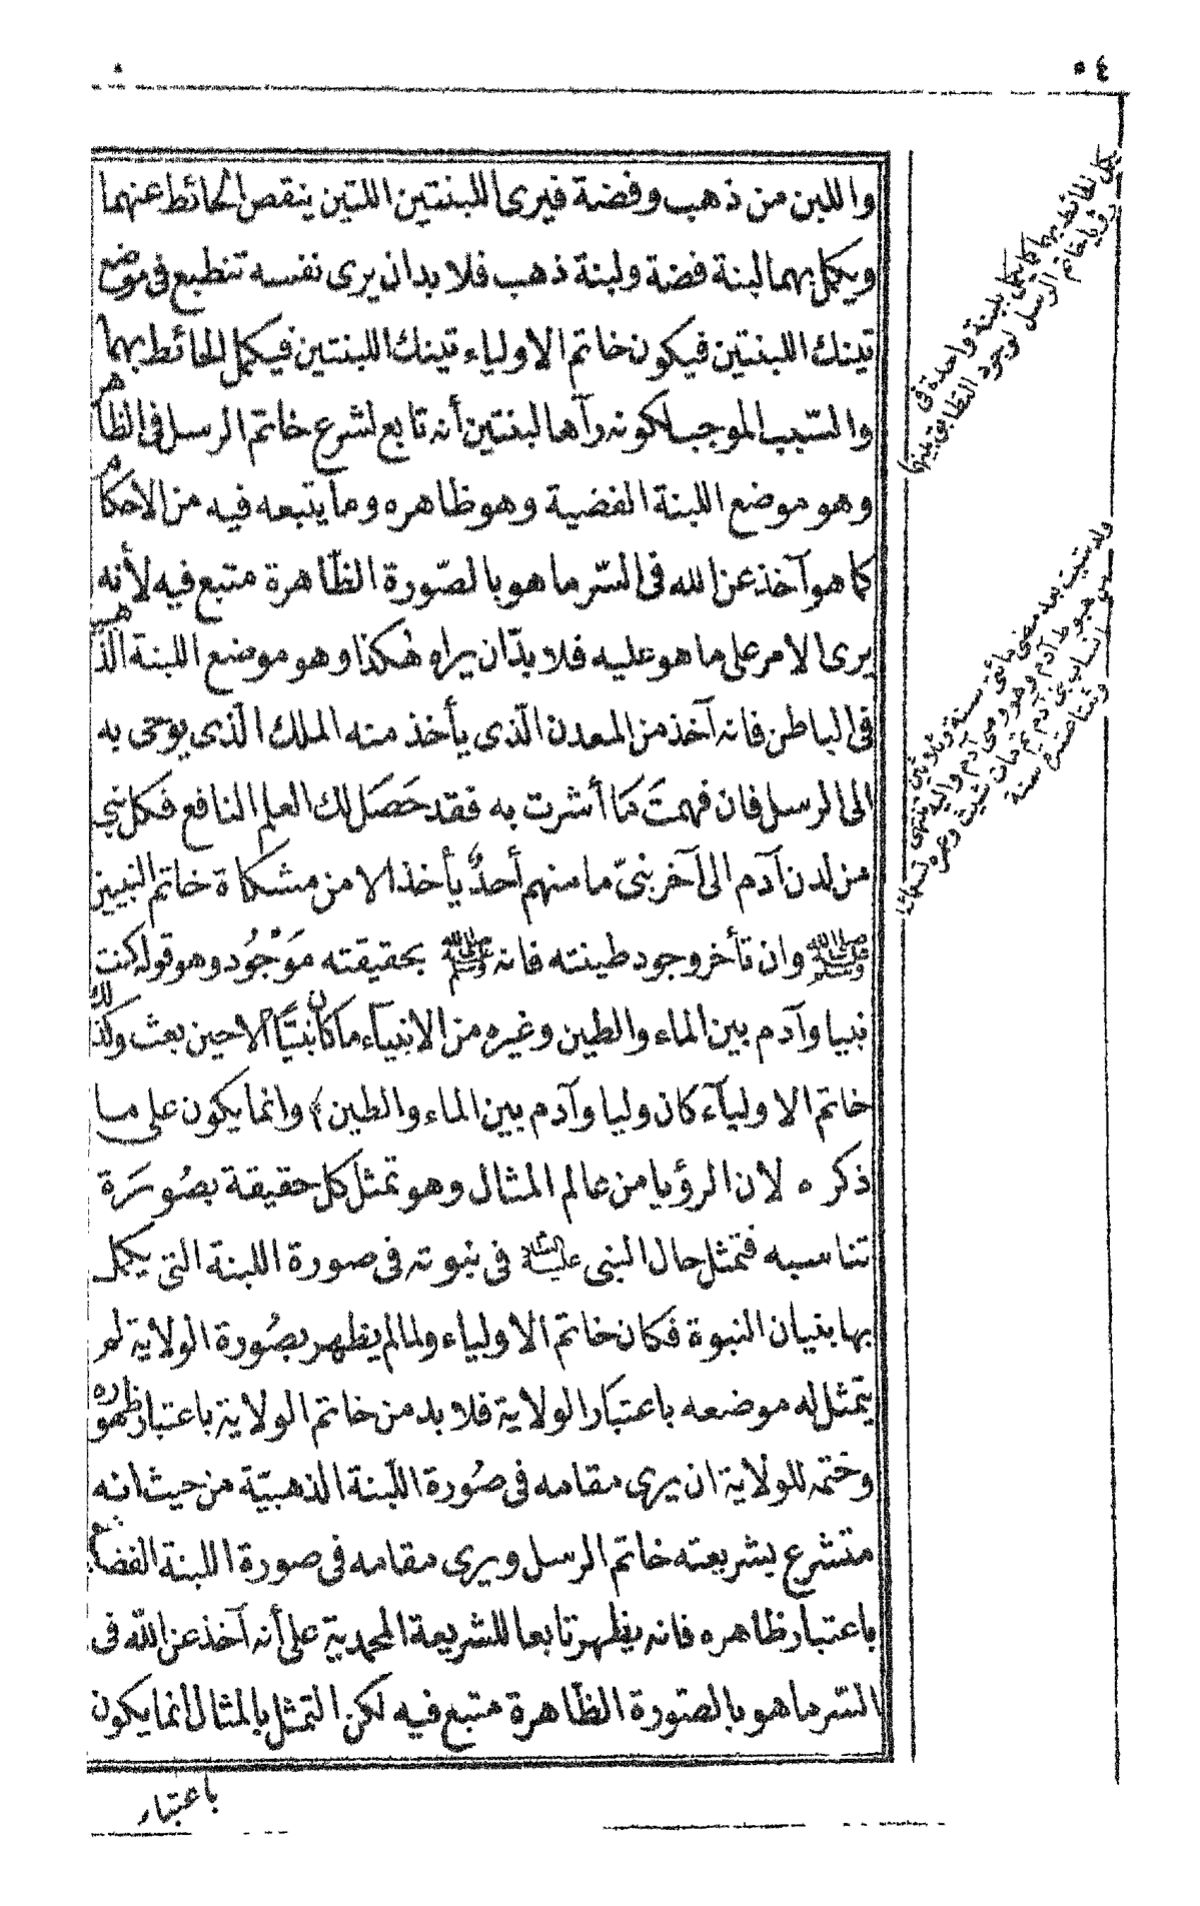 ٥٤
واللبن من ذهب وفضة فيرى اللبنتين اللتين ينقص الحائط عنهما
ويكمل بهما لبنة فضة ولبنة ذهب فلا بد ان يرى نفسه تنطبع فى موضع
تينك اللبنتين فيكون خاتم الاولياء تينك اللبنتين فيكمل الحائط بهما
والسّبب الموجب لكونه رآها لبنتين أنه تابع لشرع خاتم الرسل فى الظاهر
وهو موضع اللبنة الفضية وهو ظاهره وما يتبعه فيه من الاحكام
كما هو آخذ عن الله فى السّر ما هو بالصّورة الظّاهرة متبع فيه لأنه
يرى الامر على ما هو عليه فلا بدّ ان يراه هٰكذا وهو موضع اللبنة الذّهبية
فى الباطن فانه آخذ من المعدن الّذى يأخذ منه الملك الّذى يوحى به
الى الرسل فان فهمتَ مَا أشرت به فقد حَصَل لك العلم النافع فكل نبي
من لدن آدم الى آخر نبىّ ما منهم أحدٌ يأخذ الا من مشكاة خاتم النبيين
ﷺ وان تأخر وجود طينته فانه ﷺ بحقيقته مَوْجُود وهو قوله كنت
نبيا وآدم بين الماء والطين وغيره من الانبيآء ما كان نبيًّا الا حين بعث وكذلك
خاتم الاوليآء كان وليا وآدم بين الماء والطين﴾ وانما يكون على ما
ذكره لان الرؤيا من عالم المثال وهو تمثل كل حقيقة بصُورَة
تناسبه فتمثل حال النبى عليه السلام فى نبوته فى صورة اللبنة التى يكمل
بها بنيان النبوة فكان خاتم الاولياء ولما لم يظهر بصُورة الولاية لم
يتمثل له موضعه باعتبار الولاية فلا بد من خاتم الولاية باعتبار ظهوره
وختمه للولاية ان يرى مقامه فى صُورة اللّبنة الذهبيّة من حيث انه
متشرع بشريعته خاتم الرسل ويرى مقامه فى صورة اللبنة الفضية
باعتبار ظاهره فانه يظهر تابعا للشريعة المحمدية على أنه آخذ عن اللّه فى
السّر ما هو بالصّورة الظّاهرة متبع فيه لكن التمثل بالمثال انما يكون
باعتبار
يكمل الحائط بهما كما يكمل بلبنة واحدة فى
رؤيا خاتم الرسل لوجود التطابق بينهما
ولد شيث بعد مضى مائتى سنة وثلاثين
من هبوط آدم وهو وصى آدم واليه تنتهى
انساب بنى آدم ثم مات شيث وعمره تسعمائة
سنة